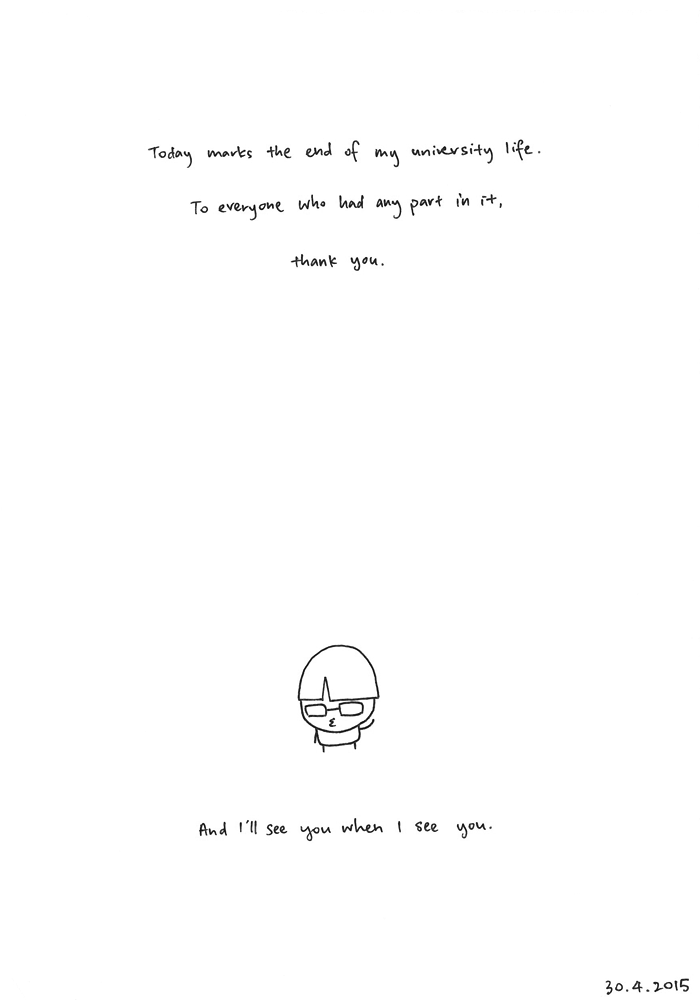 Today marks the end of my university life.
To everyone who had any part in it,
thank you.
And I'll see you when I see you.
30.4.2015